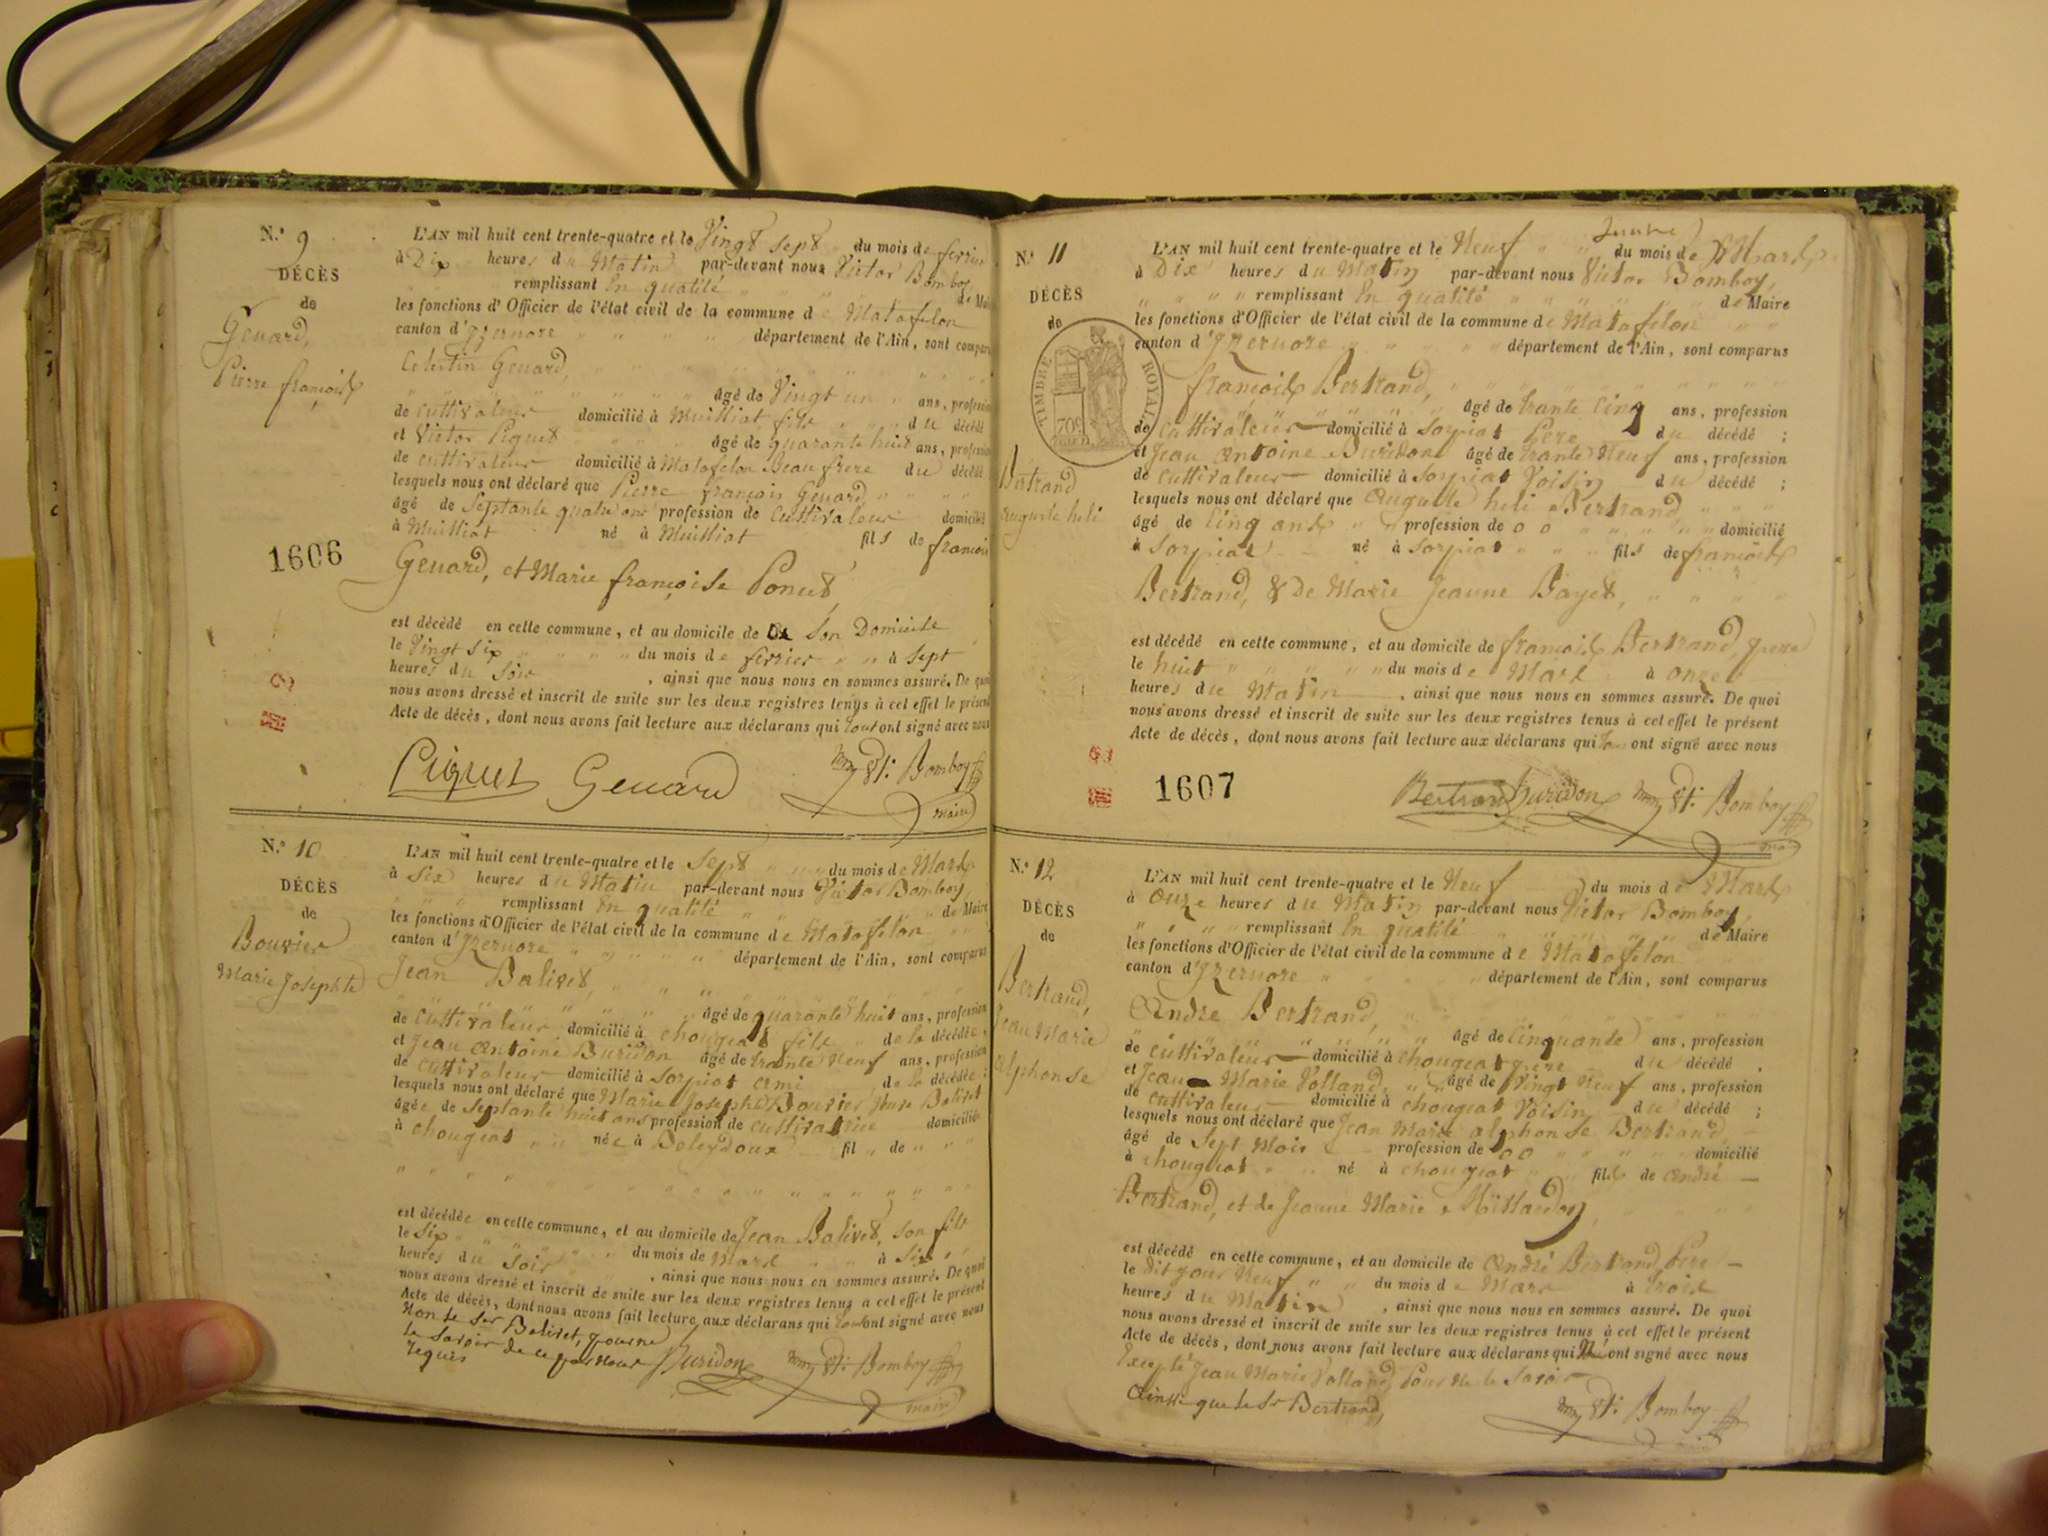 N.° 9
DÉCÈS
de
Genard,
Pierre françois
1606
L'AN mil huit cent trente-quatre et le Vingt sept du mois de fevrier
à Dix heures du Matin par-devant nous Victor Bomboy
remplissant En qualité de Maire
les fonctions d'Officier de l'état civil de la commune de Matafelon
canton d'Yzernore département de l'Ain, sont comparus
Celestin Genard,
âgé de Vingt un ans, profession
de cultivateur domicilié à Muilliat fils du décédé
et Victor Piquet âgé de quarante huit ans, profession
de cultivateur domicilié à Matafelon Beau frere du décédé
lesquels nous ont déclaré que Pierre françois Genard
âgé de Septante quatre ans profession de Cultivateur domicilié
à Muilliat né à Muilliat fils de françois
Genard, et Marie françoise Poncet
est décédé en cette commune, et au domicile de Son Domicile
le Vingt six du mois de fevrier à sept
heures du soir, ainsi que nous nous en sommes assuré. De quoi
nous avons dressé et inscrit de suite sur les deux registres tenus à cet effet le présent
Acte de décès, dont nous avons fait lecture aux déclarans qui tous ont signé avec nous
Piquet Genard Bomboy
maire
N.° 10
DÉCÈS
de
Bouvier
Marie Josephte
L'AN mil huit cent trente-quatre et le sept du mois de Mars
à six heures du Matin par-devant nous Victor Bomboy,
remplissant en qualité de Maire
les fonctions d'Officier de l'état civil de la commune de Matafelon
canton d'Yzernore département de l'Ain, sont comparus
Jean Balivet,
âgé de quarante huit ans, profession
de cultivateur domicilié à chougeat fils de la décédée,
et Jean Antoine Buridon âgé de trante Neuf ans, profession
de cultivateur domicilié à Sorpiat ami de la décédée;
lesquels nous ont déclaré que Marie Josephte Bouvier Veuve Balivet
âgée de septante huit ans profession de cultivatrice domiciliée
à chougeat née à fil de
est décédée en cette commune, et au domicile de Jean Balivet, son fils
le six du mois de Mars à six
heures du soir, ainsi que nous nous en sommes assuré. De quoi
nous avons dressé et inscrit de suite sur les deux registres tenus à cet effet le présent
Acte de décès, dont nous avons fait lecture aux déclarans qui tous ont signé avec nous
Non le Sr Balivet, pour ne
le savoir de ce par nous
requis Buridon Bomboy
maire
N.° 11
DÉCÈS
de
TIMBRE ROYAL
Bertrand
auguste heli
L'AN mil huit cent trente-quatre et le Neuf du mois de Mars
à Dix heures du Matin par-devant nous Victor Bomboy,
remplissant En qualité de Maire
les fonctions d'Officier de l'état civil de la commune de Matafelon
canton d'Yzernore département de l'Ain, sont comparus
françois Bertrand,
âgé de trante cinq ans, profession
de cultivateur domicilié à Sorpiat Pere du décédé;
et Jean Antoine Buridon âgé de trante Neuf ans, profession
de cultivateur domicilié à Sorpiat Voisin du décédé;
lesquels nous ont déclaré que Auguste heli Bertrand
âgé de Cinq ans profession de 00 domicilié
à Sorpiat né à Sorpiat fils de françois
Bertrand, & de Marie Jeanne Bayet,
est décédé en cette commune, et au domicile de françois Bertrand, pere
le huit du mois de Mars à onze
heures du Matin, ainsi que nous nous en sommes assuré. De quoi
nous avons dressé et inscrit de suite sur les deux registres tenus à cet effet le présent
Acte de décès, dont nous avons fait lecture aux déclarans qui tous ont signé avec nous
1607
Bertrand Buridon Bomboy
N.° 12
DÉCÈS
de
Bertrand,
Jean Marie
alphonse
L'AN mil huit cent trente-quatre et le Neuf du mois de Mars
à Onze heures du Matin par-devant nous Victor Bomboy,
remplissant En qualité de Maire
les fonctions d'Officier de l'état civil de la commune de Matafelon
canton d'Yzernore département de l'Ain, sont comparus
André Bertrand,
âgé de cinquante ans, profession
de cultivateur domicilié à chougeat pere du décédé,
et Jean Marie Volland, âgé de Vingt Neuf ans, profession
de cultivateur domicilié à chougeat Voisin du décédé;
lesquels nous ont déclaré que Jean Marie alphonse Bertrand
âgé de Sept Mois profession de 00 domicilié
à chougeat né à chougeat fils de André
Bertrand, et de Jeanne Marie
est décédé en cette commune, et au domicile de André Bertrand, Pere
le dit jour Neuf du mois de Mars à trois
heures du Matin, ainsi que nous nous en sommes assuré. De quoi
nous avons dressé et inscrit de suite sur les deux registres tenus à cet effet le présent
Acte de décès, dont nous avons fait lecture aux déclarans qui ont signé avec nous
Excepté Jean Marie Volland, Pour ne le Savoir
Ainsi que le Sr Bertrand, Bomboy